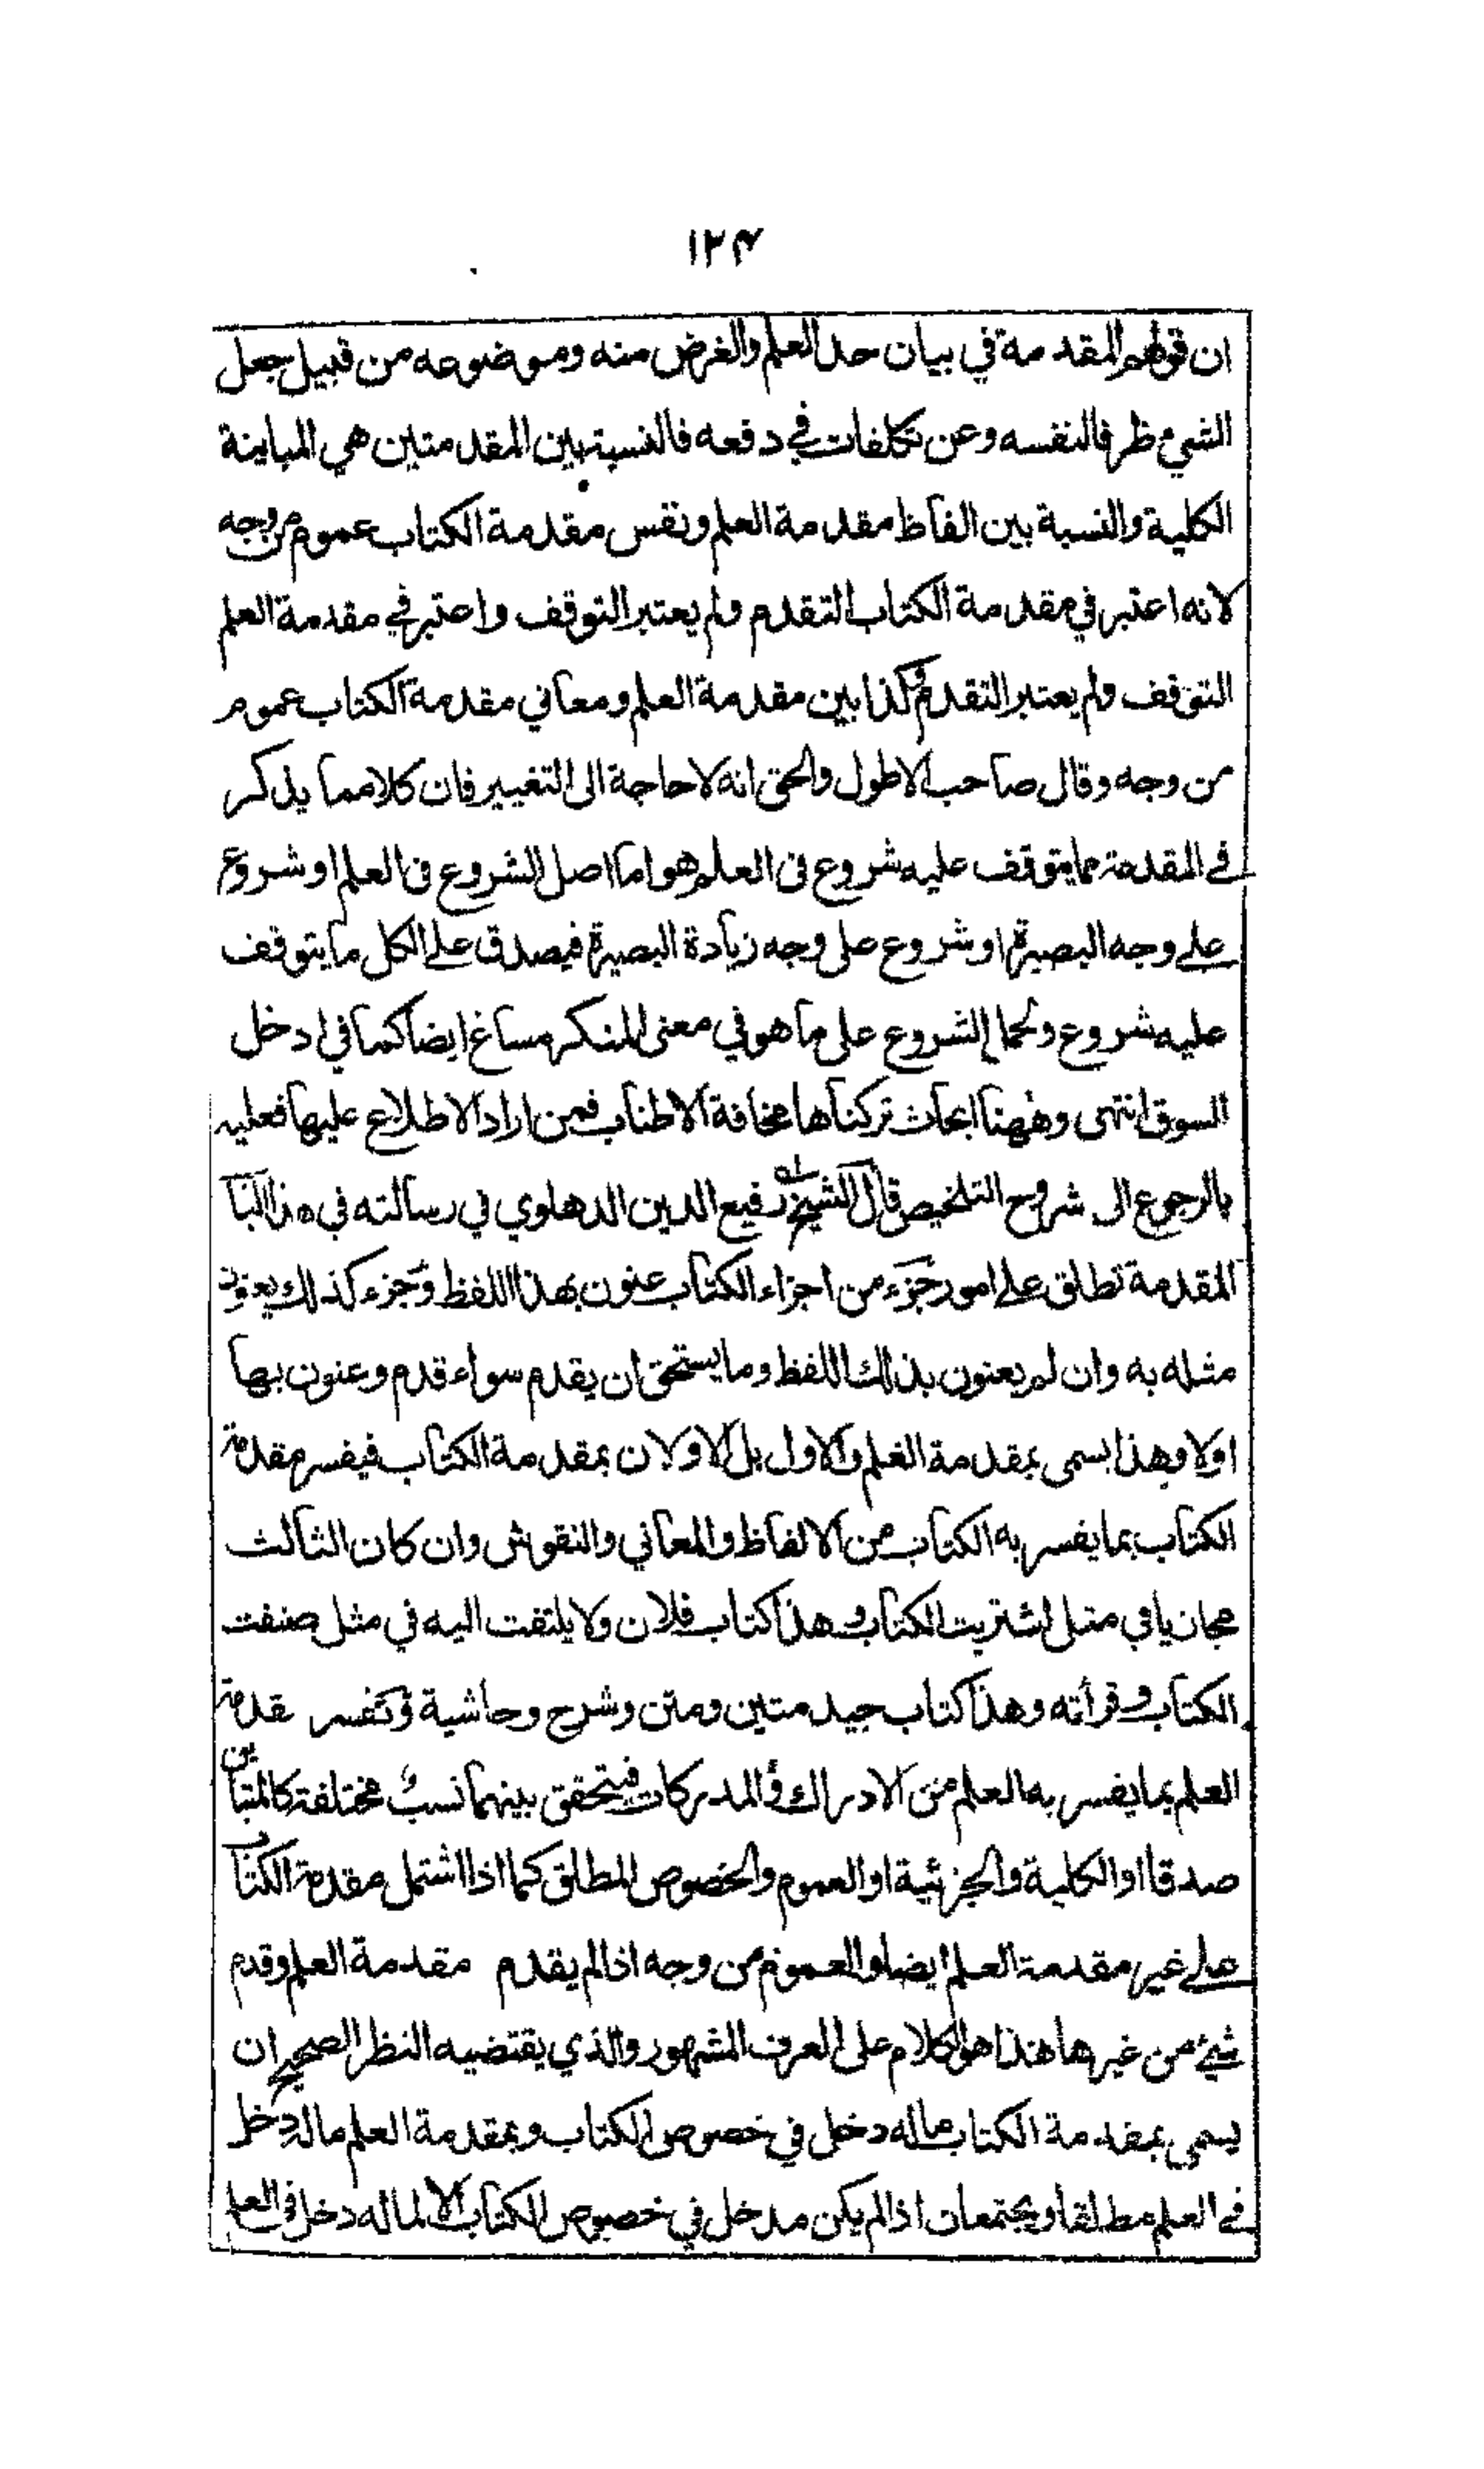 ١٢٤
ان قولهم المقدمة في بيان حد العلم والغرض منه وموضوعه من قبيل جعل
الشيء ظرفا لنفسه وعن تكلفات في دفعه فالنسبة بين المقدمتين هي المباينة
الكلية والنسبة بين الفاظ مقدمة العلم ونفس مقدمة الكتاب عموم من وجه
لانه اعتبر في مقدمة الكتاب التقدم ولم يعتبر التوقف واعتبر في مقدمة العلم
التوقف ولم يعتبر التقدم وكذا بين مقدمة العلم ومعاني مقدمة الكتاب عموم
من وجه وقال صاحب الاطول والحق انه لا حاجة الى التغيير فان كلا مما يذكر
في المقدمة مما يتوقف عليه شروع في العلم هو اما اصل الشروع في العلم او شروع
على وجه البصيرة او شروع على وجه زيادة البصيرة فيصدق على الكل ما يتوقف
عليه شروع ولحمل الشروع على ما هو في معنى المنكر مساغ ايضا كما في ادخل
السوق انتهى وههنا ابحاث تركناها مخافة الاطناب فمن اراد الاطلاع عليها فعليه
بالرجوع الى شروح التلخيص قال الشيخ رفيع الدين الدهلوي في رسالته في هذا البا
المقدمة تطلق على امور جزء من اجزاء الكتاب عنون بهذا اللفظ وجزء كذلك يعنون
مثله به وان لم يعنون بذلك اللفظ وما يستحق ان يقدم سواء قدم وعنون بها
اولا وهذا يسمى بمقدمة العلم والاول بل الاولان بمقدمة الكتاب فيفسر مقدمة
الكتاب بما يفسر به الكتاب من الالفاظ والمعاني والنقوش وان كان الثالث
مجازيا في مثل اشتريت الكتاب وهذا كتاب فلان ولا يلتفت اليه في مثل صنفت
الكتاب وقرأته وهذا كتاب جيد متين ومتن وشرح وحاشية وتفسر مقدمة
العلم بما يفسر به العلم من الادراك والمدركات فيتحقق بينهما نسب مختلفة كالمتباين
صدقا او الكلية والجزئية او العموم والخصوص المطلق كما اذا اشتمل مقدمة الكتاب
على غير مقدمة العلم ايضا والعموم من وجه اذا لم يقدم مقدمة العلم وقدم
شيء من غيرها هذا هو الكلام على العرف المشهور والذي يقتضيه النظر الصحيح ان
يسمى بمقدمة الكتاب ما له دخل في خصوص الكتاب وبمقدمة العلم ما له دخل
في العلم مطلقا ويجتمعان اذا لم يكن مدخل في خصوص الكتاب الا لما له دخل في العلم